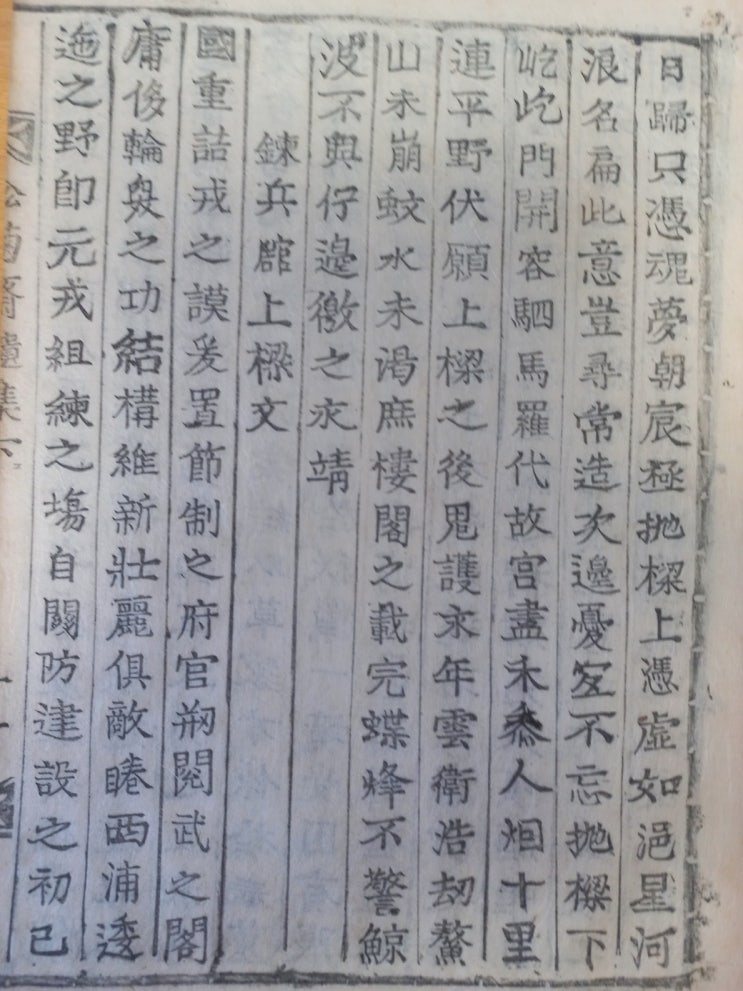 日歸只憑魂夢朝宸極抛樑上憑虛如浥星河
浪名扁此意豈尋常造次邊憂定不忘抛樑下
屹屹門開容駟馬羅代故宮盡禾黍人烟十里
連平野伏願上樑之後鬼護永年雲衛浩劫鰲
山未崩蛟水未渴庶樓閣之載完蝶烽不警鯨
波不興仔邊徼之永靖
鍊兵館上樑文
國重詰戎之謨爰置節制之府官刱閱武之閣
庸侈輪奐之功結構維新壯麗俱敵睠西浦逶
迤之野卽元戎組練之塲自關防建設之初已
松菊齋遺集下